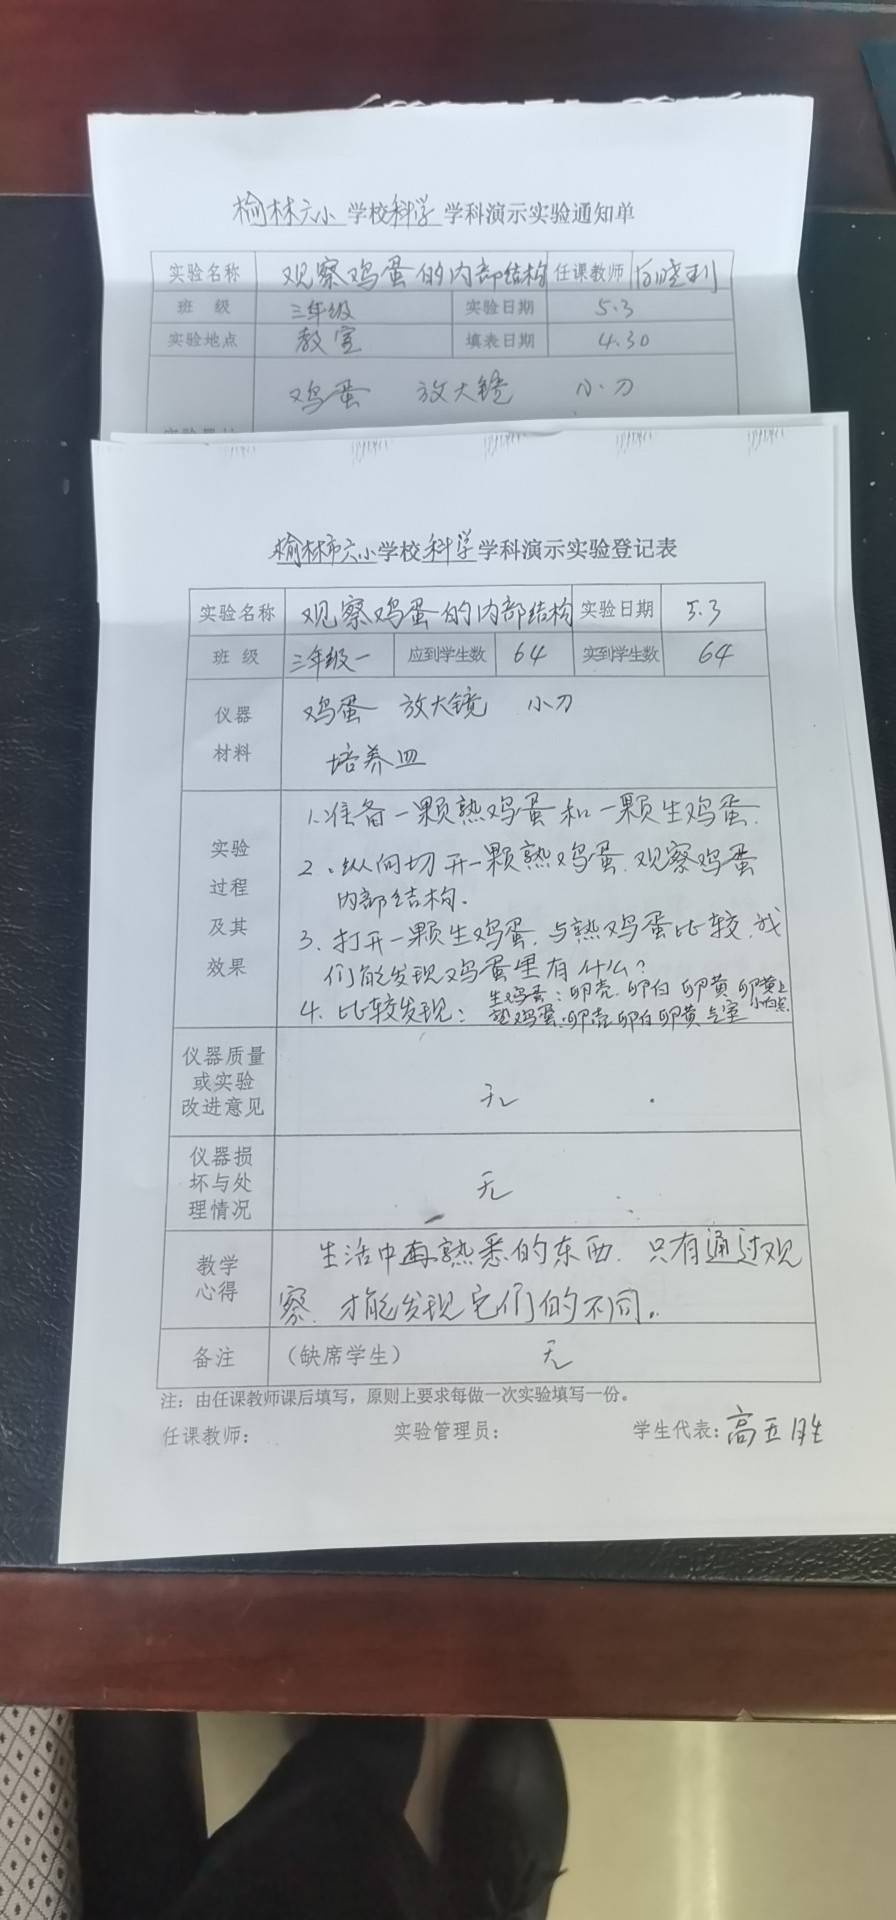 榆林六小 学校科学 学科演示实验通知单
实验名称 观察鸡蛋的内部结构 任课教师
班 级 三年级 实验日期 5.3
实验地点 教室 填表日期 4.30
鸡蛋 放大镜 小刀
榆林市六小学校科学学科演示实验登记表
实验名称 观察鸡蛋的内部结构 实验日期 5.3
班 级 三年级一 应到学生数 64 实到学生数 64
仪器 鸡蛋 放大镜 小刀
材料 培养皿
1.准备一颗熟鸡蛋和一颗生鸡蛋.
实验
2.纵向切开一颗熟鸡蛋.观察鸡蛋
过程
内部结构.
及其 3.打开一颗生鸡蛋.与熟鸡蛋比较.我
效果 们能发现鸡蛋里有什么?
4.比较发现: 生鸡蛋:卵壳.卵白 卵黄 卵黄上小白点
熟鸡蛋:卵壳 卵白 卵黄 气室
仪器质量
或实验 无
改进意见
仪器损
坏与处 无
理情况
教学 生活中再熟悉的东西.只有通过观
心得 察.才能发现它们的不同.
备注 (缺席学生) 无
注: 由任课教师课后填写,原则上要求每做一次实验填写一份。
任课教师: 实验管理员: 学生代表:高五胜